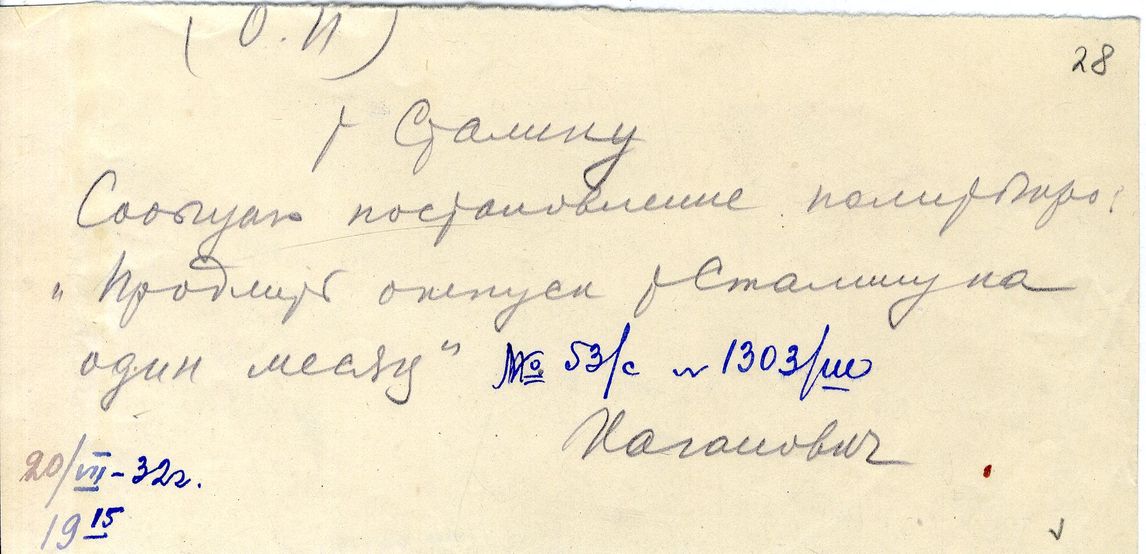 (О.П)
28
т Сталину
Сообщаю постановление политбюро:
"Продлить отпуск т Сталину на
один месяц" № 53/с и 1303/ш
Каганович
20/VII-32г.
19 15